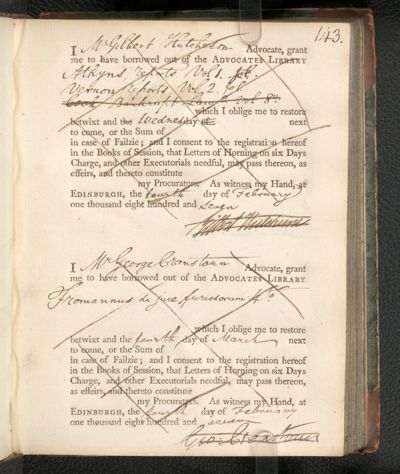 143.
I Mr Gilbert Hutcheson Advocate, grant
me to have borrowed out of the ADVOCATES LIBRARY
Atkyns reports Vol 1. fol.
Vernon reports Vol 2. fol
Bankrupt Laws Vol 8º
which I oblige me to restore
betwixt and the Wednesday next
to come, or the Sum of
in case of Failzie; and I consent to the registration hereof
in the Books of Session, that Letters of Horning on six Days
Charge, and other Executorials needful, may pass thereon, as
effeirs, and thereto constitute
my Procurators. As witness my Hand, at
EDINBURGH, the fourth day of February
one thousand eight hundred and seven
Gilbert Hutcheson
I Mr George Cranstoun Advocate, grant
me to have borrowed out of the ADVOCATES LIBRARY
Fromannus de jure furiosorum 4to
which I oblige me to restore
betwixt and the fourth day of March next
to come, or the Sum of
in case of Failzie; and I consent to the registration hereof
in the Books of Session, that Letters of Horning on six Days
Charge, and other Executorials needful, may pass thereon,
as effeirs, and thereto constitute
my Procurators. As witness my Hand, at
EDINBURGH, the fourth day of February
one thousand eight hundred and seven
Geo: Cranstoun